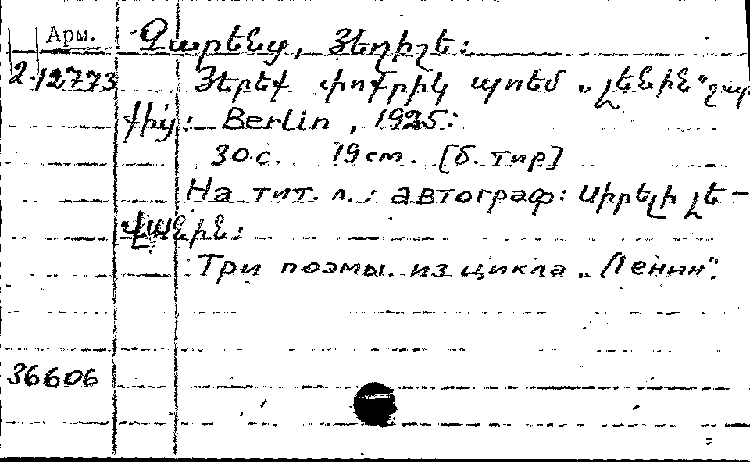 Арм. Չարենց, Յեղիշե:
2-12773 Յերեք փոքրիկ պոեմ „Լենին“ շար
քից: Berlin, 1925:
30 с. 19 см. [б. тир]
На тит. л.: автограф: Սիրելի Լե-
վանին:
Три поэмы из цикла „Ленин“.
36606